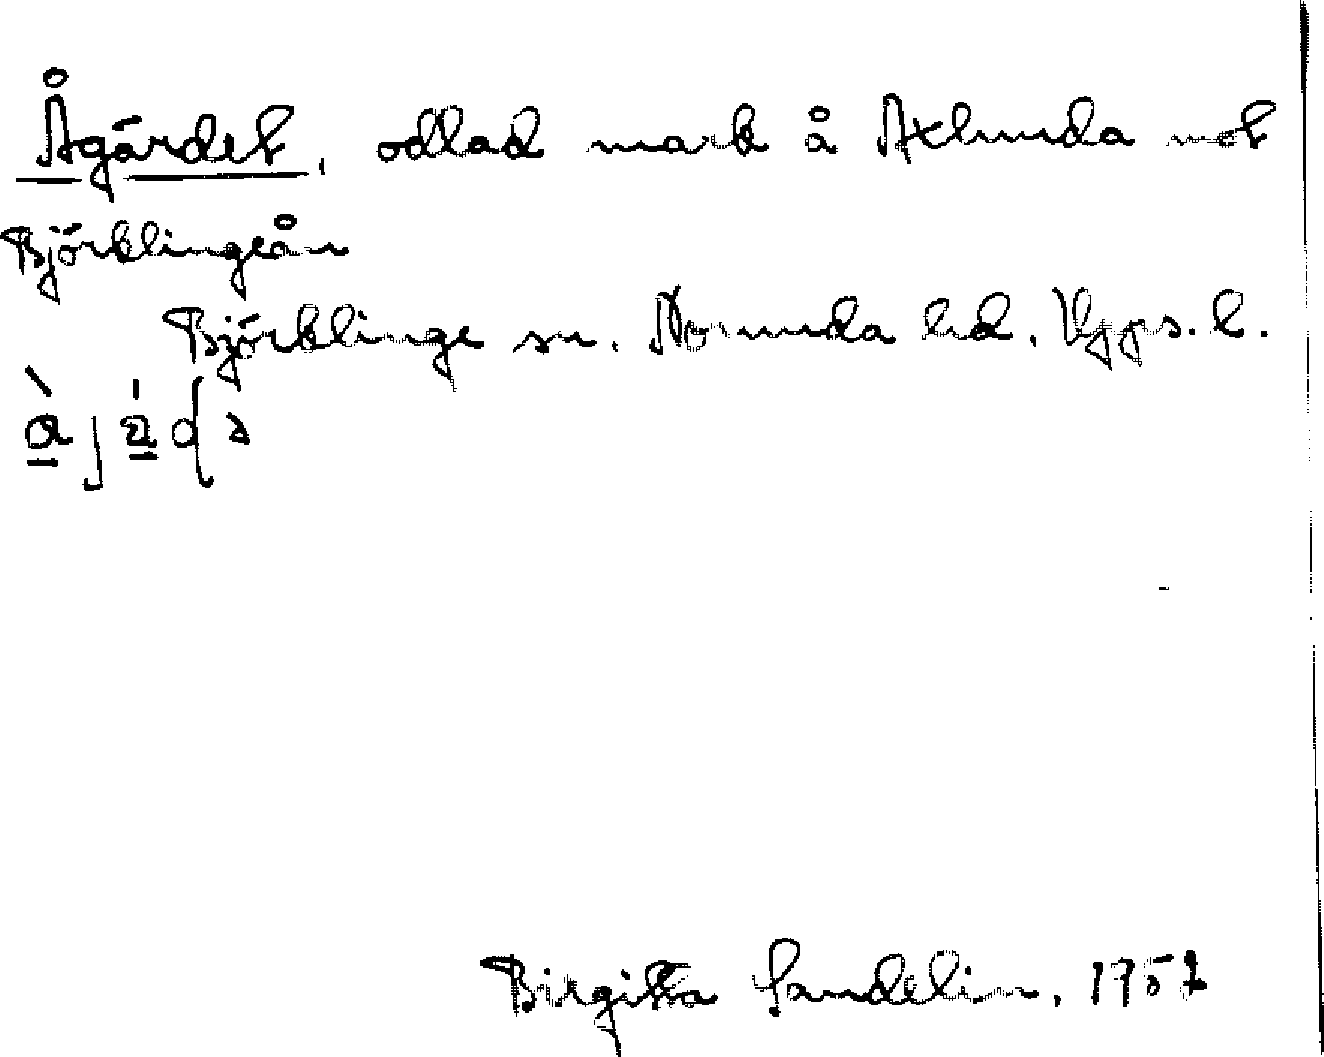 Ågärdet, odlad mark å Axlunda mot
Björklingeån
Björklinge sn. Norunda hd. Upps. l.
Birgitta Sandelin, 1957